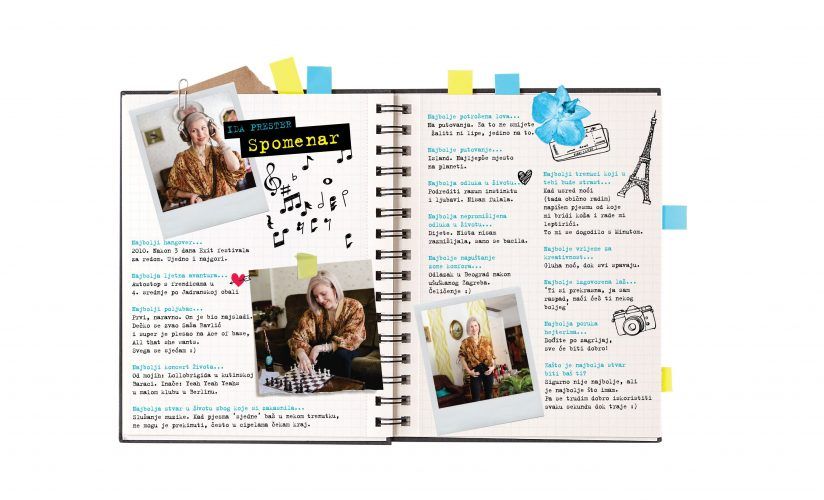 IDA PRESTER
Spomenar
Najbolji hangover...
2010. Nakon 3 dana Exit festivala
za redom. Ujedno i najgori.
Najbolja ljetna avantura...
Autostop s frendicama u
4. srednje po Jadranskoj obali
Najbolji poljubac...
Prvi, naravno. On je bio najslađi.
Dečko se zvao Saša Ravlić
i super je plesao na Ace of base,
All that she wants.
Svega se sjećam :)
Najbolji koncert života...
Od mojih: Lollobrigida u kutinskoj
Baraci. Inače: Yeah Yeah Yeahs
u malom klubu u Berlinu.
Najbolja stvar u životu zbog koje si zakasnila...
Slušanje muzike. Kad pjesma 'sjedne' baš u nekom trenutku,
ne mogu je prekinuti, često u cipelama čekam kraj.
Najbolje potrošena lova...
Na putovanja. Za to ne smijete
žaliti ni lipe, jedino na to.
Najbolje putovanje...
Island. Najljepše mjesto
na planeti.
Najbolja odluka u životu...
Podrediti razum instinktu
i ljubavi. Nisam fulala.
Najbolja nepromišljena
odluka u životu...
Dijete. Ništa nisam
razmišljala, samo se bacila.
Najbolje napuštanje
zone komfora...
Odlazak u Beograd nakon
ušuškanog Zagreba.
Čeličenje :)
Najbolji trenuci koji u
tebi bude strast...
Kad usred noći
(tada obično radim)
napišem pjesmu od koje
mi bridi koža i rade mi
leptirići.
To mi se dogodilo s Minutom.
Najbolje vrijeme za
kreativnost...
Gluha noć, dok svi spavaju.
Najbolje izgovorena laž...
'Ti si prekrasna, ja sam
raspad, naći ćeš ti nekog
boljeg'
Najbolja poruka
hejterima...
Dođite po zagrljaj,
sve će biti dobro!
Zašto je najbolja stvar
biti baš ti?
Sigurno nije najbolje, ali
je najbolje što imam.
Pa se trudim dobro iskoristiti
svaku sekundu dok traje :)